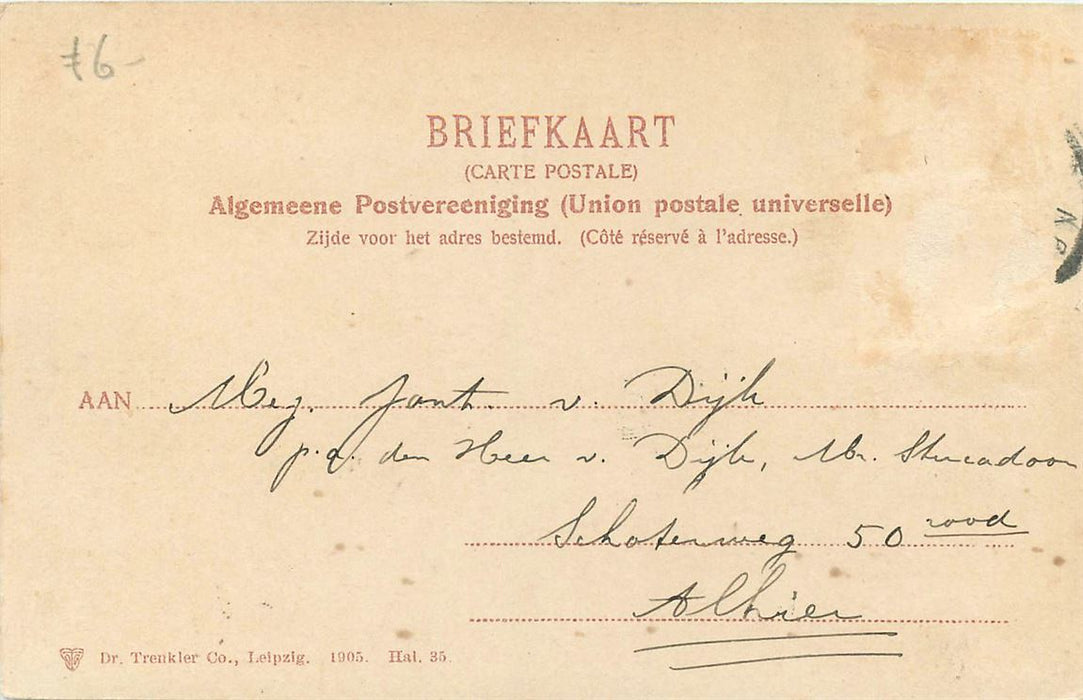 ₤6-
BRIEFKAART
(CARTE POSTALE)
Algemeene Postvereeniging (Union postale universelle)
Zijde voor het adres bestemd. (Côté réservé à l'adresse.)
AAN Mej. Jont. v. Dijk
p.a. den Heer v. Dijk, Mr. Stucadoor
Schotenweg 50 rood
Alhier
Dr. Trenkler Co., Leipzig. 1905. Hal. 35.